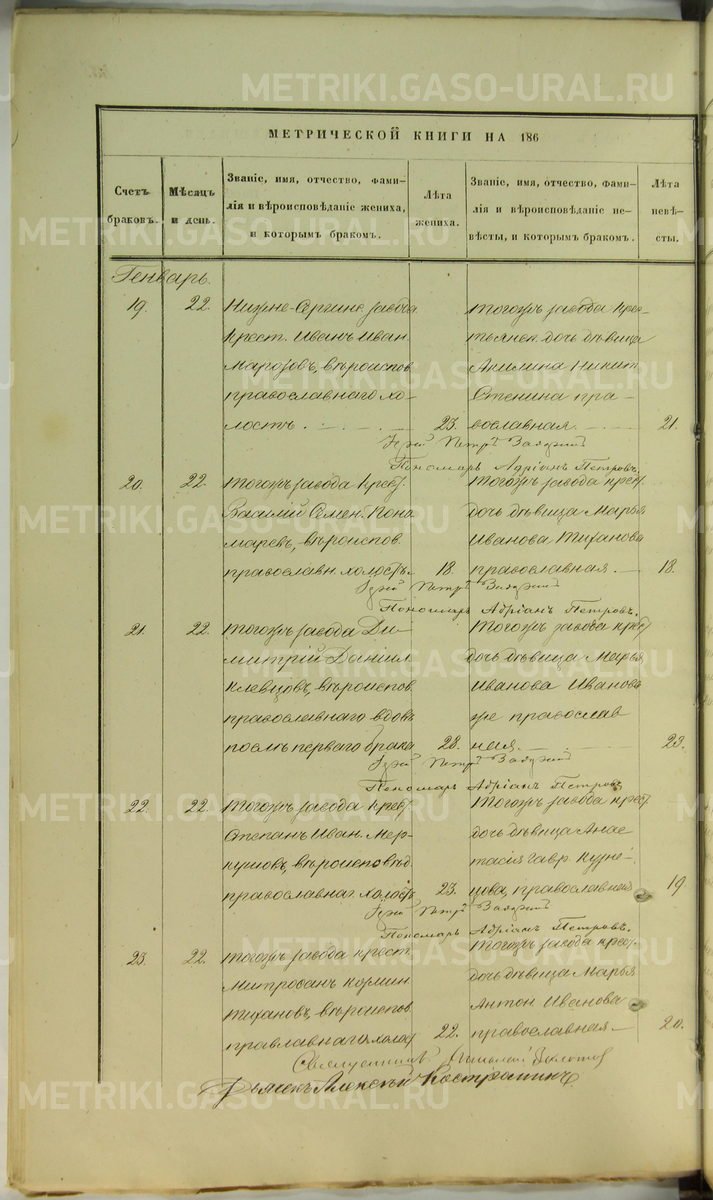 METRIKI.GASO-URAL.RU
МЕТРИЧЕСКОЙ КНИГИ НА 186
Счетъ браковъ.
Мѣсяцъ и день.
Званіе, имя, отчество, фами-
лія и вѣроисповѣданіе жениха,
и которымъ бракомъ.
Лѣта жениха.
Званіе, имя, отчество, фами-
лія и вѣроисповѣданіе не-
вѣсты, и которымъ бракомъ.
Лѣта невѣ-
сты.
Генварь.
19. 22. Нижне-Сергинс. завода
Крест. Иванъ Иван.
Марозовъ, вѣроиспов.
православнаго хо-
лостъ. 23.
Тогожъ завода Крес-
тьянск. дочь дѣвица
Акилина Никит.
Стенина пра-
вославная. 21.
Іерей Петръ
Пономарь Адріанъ Петровъ.
20. 22. Тогожъ завода Крест.
Василій Семен. Пона
маревъ, вѣроиспов.
православн. холостъ. 18.
Тогожъ завода крест.
дочь дѣвица Марья
Иванова Тифанова
православная. 18.
Іерей Петръ
Пономарь Адріанъ Петровъ.
21. 22. Тогожъ завода Ди-
митрій Даніил.
Клевцовъ, вѣроиспов.
православнаго вдовъ
послѣ перваго брака 28.
Тогожъ завода крест.
дочь дѣвица Марья
Иванова Иванова
же православ
ная. 23.
Іерей Петръ
Пономарь Адріанъ Петровъ.
22. 22. Тогожъ завода Крест.
Степанъ Иван. Мер-
кушовъ, вѣроисповѣд.
православнаг. холостъ 23.
Тогожъ завода крест.
дочь дѣвица Анас
тасія Гавр. Кузне-
цова, православная 19
Іерей Петръ
Пономарь Адріанъ Петровъ.
23. 22. Тогожъ завода крест.
Митрофанъ Козмин.
Тифановъ, вѣроиспов.
православнаго холос. 22.
Тогожъ завода крест.
дочь дѣвица Марья
Антон. Иванова
православная. 20.
Священникъ Николай
Дьячекъ Алексѣй Костроминъ